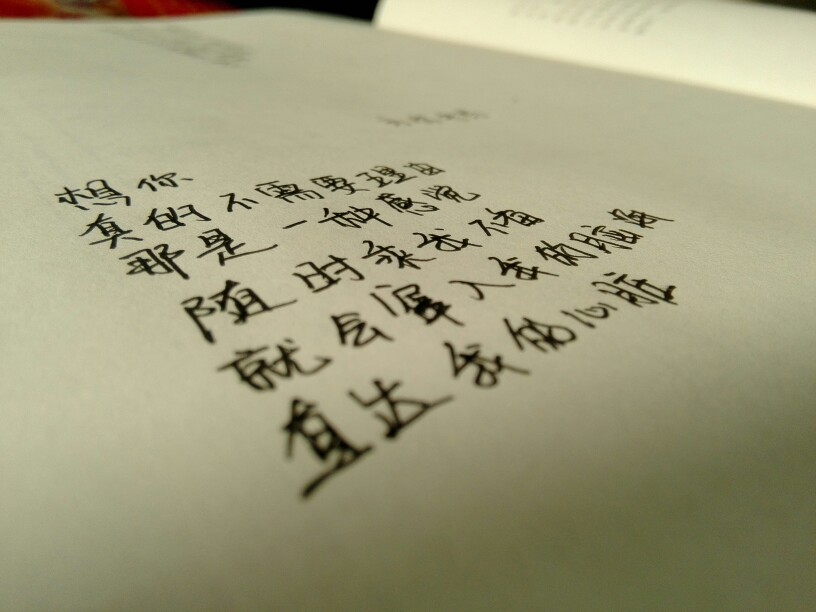 想你
真的不需要理由
那是一种感觉
随时乘我不备
就会入我的脑海
直达我的心脏